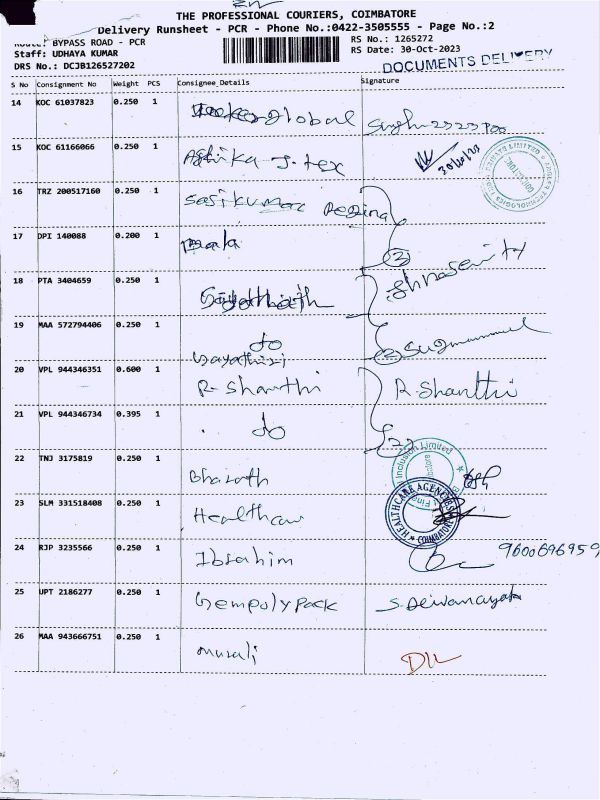 THE PROFESSIONAL COURIERS, COIMBATORE
Delivery Runsheet - PCR - Phone No.:0422-3505555 - Page No.:2
Route: BYPASS ROAD - PCR
RS No.: 1265272
Staff: UDHAYA KUMAR
RS Date: 30-Oct-2023
DRS No.: DCJB126527202
DOCUMENTS DELIVERY
S No Consignment No Weight PCS Consignee_Details Signature
14 KOC 61037823 0.250 1 global
15 KOC 61166066 0.250 1 J. tex 30/10/23
16 TRZ 200517160 0.250 1 Sasikumar Regina
17 DPI 140088 0.200 1 mala
2
18 PTA 3404659 0.250 1
19 MAA 572794406 0.250 1 do
2
Gayathiri
20 VPL 944346351 0.600 1 R. Shanthi R. Shanthi
21 VPL 944346734 0.395 1 do
2
22 TNJ 3175819 0.250 1 Bharath
Inclusion Limited
23 SLM 331518408 0.250 1 Healthcare
HEALTHCARE AGENCIES
COIMBATORE
24 RJP 3235566 0.250 1 Ibrahim 9600696959
25 UPT 2186277 0.250 1 Gempolypack S. Deivanayaki
26 MAA 943666751 0.250 1 murali